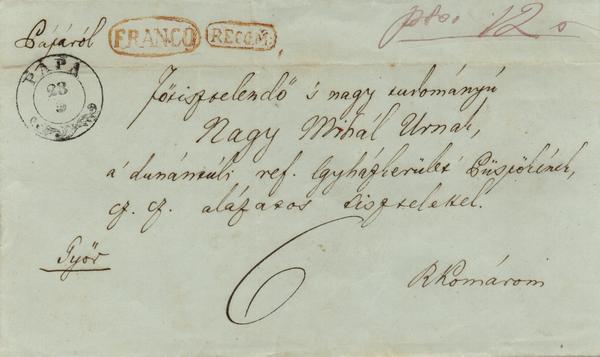 Pápáról
FRANCO
RECOM.
pto. 12 s
PÁPA
23
9
Főtisztelendő 's nagy tudományú
Nagy Mihál Urnak,
a' dunántúli ref. Egyházkerület' Püspökének,
cz. cz. alázatos tisztelettel.
Győr
6
RKomárom